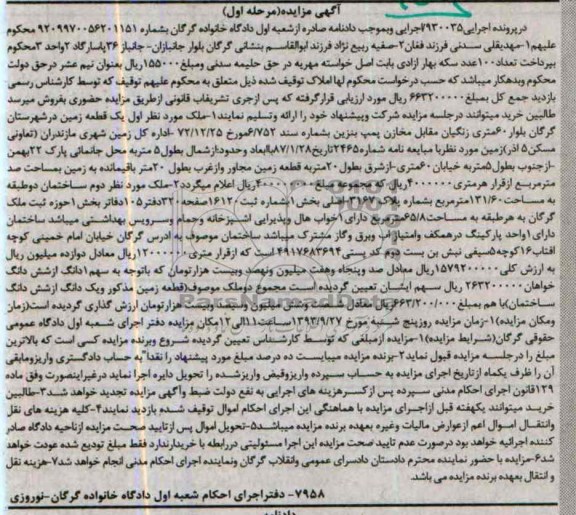 آگهی مزایده(مرحله اول)
درپرونده اجرایی۹۳۰۰۳۵/اجرایی وبموجب دادنامه صادره ازشعبه اول دادگاه خانواده گرگان بشماره ۹۲۰۹۹۷۰۰۵۶۲۰۱۱۵۱ محکوم
علیهم۱-مهدیقلی سدنی فرزند فغان۲-صفیه ربیع نژاد فرزند ابوالقاسم بنشانی گرگان بلوار جانبازان- جانباز۳۶پاساژگاد۲واحد ۳محکوم
بپرداخت تعداد۱۰۰عدد سکه بهار ازادی بابت اصل خواسته مهریه در حق حلیمه سدنی ومبلغ۱۵۵۰۰۰ریال بعنوان نیم عشر درحق دولت
محکوم وبدهکار میباشد که حسب درخواست محکوم لها املاک توقیف شده ذیل متعلق به محکوم علیهم توقیف که توسط کارشناس رسمی
بازدید جمع کل بمبلغ ۶۶۳۲۰۰۰۰۰ ریال مورد ارزیابی قرارگرفته که پس ازجری تشریفات قانونی ازطریق مزایده حضوری بفروش میرسد
طالبین خرید میتوانند درجلسه مزایده شرکت وپیشنهاد خود را ارائه وتسلیم نمایند۱-ملک مورد نظر اول یک قطعه زمین درشهرستان
گرگان بلوار ۶۰متری زنگیان مقابل مخازن پمپ بنزین بشماره سند ۶/۷۵۲مورخ ۷۲/۱۲/۲۵ -اداره کل زمین شهری مازندران (تعاونی
مسکن۵ اذر)زمین مورد نظربا مبایعه نامه شماره۲۴۶۵تاریخ۸۷/۱/۲۸باابعاد وحدود:ازشمال بطول۵ متربه محل جانمائی پارک ۲۲بهمن
-ازجنوب بطول۵متربه خیابان ۶۰متری-ازشرق بطول ۲۰متربه قطعه زمین مجاور وازغرب بطول ۲۰متر باقیمانده به زمین بمساحت صد
مترمربع ازقرار هرمتری۴۰۰۰۰۰۰ریال که مجموعه مبلغ ۴۰۰۰۰۰۰۰۰ریال اعلام میگردد۲-ملک مورد نظر دوم ساختمان دوطبقه
به مساحت۱۳۱/۶۰مترمربع بشماره پلاک اصلی بخش۱بشماره ثبت ۱۶۱۲۰صفحه ۳۲دفتر۱۰۵دفاتر بخش۱حوزه ثبت ملک
گرگان به هرطبقه به مساحت۶۵/۸مترمربع دارای ۱خواب هال وپذیرایی اشپزخانه وحمام وسرویس بهداشتی میباشد ساختمان
دارای۱واحد پارکینگ درهمکف وامتیاز اب وبرق وگاز مشترک میباشد ساختمان موصوف به ادرس گرگان خیابان امام خمینی کوچه
افتاب۱۶کوچه۵سیفی نبش بن بست دوم کد پستی۴۹۱۷۶۸۳۶۹۴ است که ازقرار متری ۱۲۰۰۰۰۰۰ریال معادل دوازده میلیون ریال
به ارزش کلی۱۵۷۹۲۰۰۰۰۰ریال معادل صد وپنجاه وهفت میلیون ونهصد وبیست هزارتومان که باتوجه به سهم۱دانگ ازشش دانگ
خواهان ۲۶۳۲۰۰۰۰۰ ریال سهم ایشان تعیین گردیده است مجموع دوملک موصوف(قطعه زمین مذکور ویک دانگ ازشش دانگ
ساختمان)با هم بمبلغ ۶۶۳/۲۰۰/۰۰۰ریال معادل شصت وشش میلیون وسیصد وبیست هزارتومان ارزش گذاری گردیده است(زمان
ومکان مزایده)۱-زمان مزایده روزپنج شنبه مورخ ۱۳۹۳/۹/۲۷ساعت۱۱الی۱۲مکان مزایده دفتر اجرای شعبه اول دادگاه عمومی
حقوقی گرگان(شرایط مزایده)۱-مزایده ازمبلغی که توسط کارشناس تعیین گردیده شروع وبرنده مزایده کسی است که بالاترین
مبلغ را درجلسه مزایده قبول نماید۲-برنده مزایده میبایست ده درصد مبلغ مورد پیشنهاد را نقدا"به حساب دادگستری واریزومابقی
آن را ظرف یکماه ازتاریخ اجرای مزایده به حساب سپرده واریزوقبض واریزشده را تحویل دایره اجرا نماید درغیراینصورت وفق ماده
۱۲۹قانون اجرای احکام مدنی سپرده پس ازکسرهزینه های اجرایی به نفع دولت ضبط وآگهی مزایده تجدید خواهد شد۳-طالبین
خرید میتوانند یکهفته قبل ازاجرای مزایده با هماهنگی این اجرای احکام اموال توقیف شده بازدید نمایند۴-کلیه هزینه های نقل
وانتقال اموال اعم ازعوارض مالیات وغیره بعهده برنده مزایده میباشد۵-تحویل اموال پس ازتایید صحت مزایده ازناحیه دادگاه صادر
کننده اجرائیه خواهد بود درصورت عدم تایید صحت مزایده این اجرا مسئولیتی دررابطه با خریدارندارد فقط مبلغ تودیع شده عودت خواهد
شد۶-مزایده با حضور نماینده محترم دادستان دادسرای عمومی وانقلاب گرگان ونماینده اجرای احکام مدنی انجام خواهد شد۷-هزینه نقل
و انتقال بعهده برنده مزایده می باشد.
۷۹۵۸- دفتراجرای احکام شعبه اول دادگاه خانواده گرگان-نوروزی